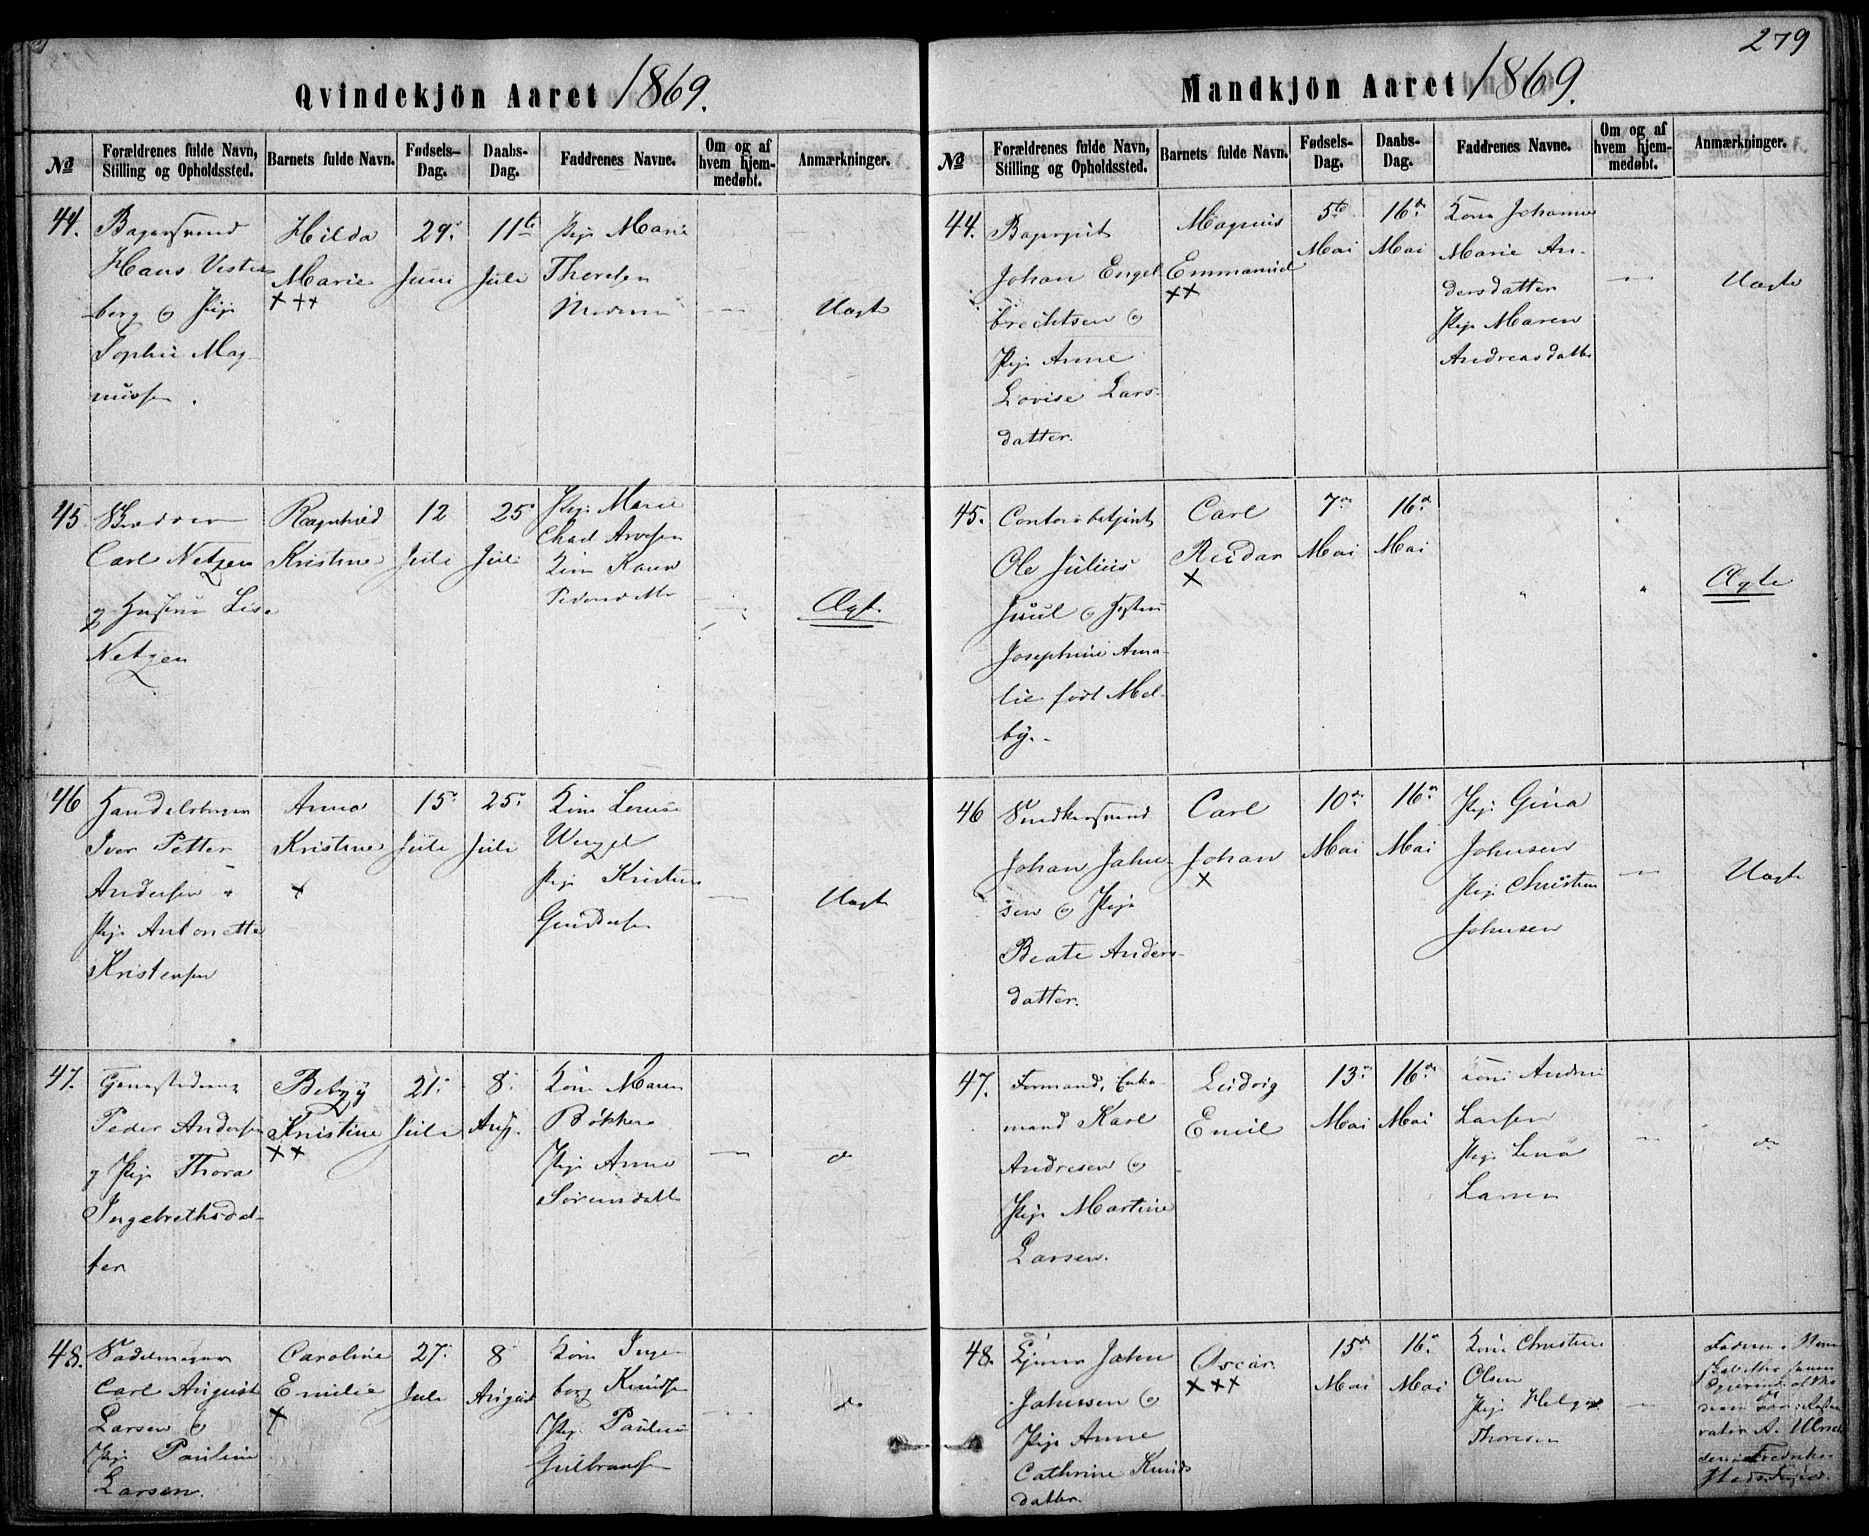 279
Qvindekjön Aaret 1869.
№
Forældrenes fulde Navn,
Stilling og Opholdssted.
Barnets fulde Navn.
Fødsels-
Dag.
Daabs-
Dag.
Faddrenes Navne.
Om og af
hvem hjem-
medøbt.
Anmærkninger.
44.
Bagersvend
Hans Vester
-berg
Sophie Mag-
nussen.
Hilda
Marie
+ ++
29
Juni
11te
Juli
Pige Marie
Thoresen
Moderen
Uægt
45
Carl Netzen
Lise
Netzen
Ragnhild
Kristine
12
Juli
25
Juli
Pige Marie
Kone Karen
Pedersdatter
Ægt.
46
Iver Petter
Andersen
Pige Antonette
Kristensen
Anna
Kristine
+
15
Juli
25
Juli
Kone Lovise
Pige Kristine
Gundersen
Uægt
47.
Peder Andersen
Pige Thora
Ingebrethsdat-
ter
Betzy
Kristine
++
21
Juli
8
Aug.
Kone Maren
Pige Anne
Sørensdatt
do
48.
Sadelmager
Carl August
Larsen &
Pige Pauline
Larsen.
Caroline
Emilie
+
27
Juli
8
August
Kone Inge
borg Knudsen
Pige Pauline
Gulbransen
do
Mandkjön Aaret 1869.
№
Forældrenes fulde Navn,
Stilling og Opholdssted.
Barnets fulde Navn.
Fødsels-
Dag.
Daabs-
Dag.
Faddrenes Navne.
Om og af
hvem hjem-
medøbt.
Anmærkninger.
44.
Johan Engel
brechtsen &
Pige Anne
Lovise Lars-
datter.
Magnus
Emmanuel
++
5te
Mai
16de
Mai
Kone Johanne
Marie An-
dersdatter
Pige Maren
Andreasdatter
Uægte
45.
Contorbetjent
Ole Julius
Juul &
Josephine Ama-
lie født Mel-
by.-
Carl
Reidar
+
7de
Mai
16de
Mai
Ægte
46
Snedkersvend
Johan Johan-
sen & Pige
Beate Anders-
datter.
Carl
Johan
+
10de
Mai
16de
Mai
Pige Gina
Johnsen
Pige Christine
Johnsen
Uægte
47.
Formand, Enke-
mand Karl
Andresen &
Pige Martine
Larsen.
Ludvig
Emil
13de
Mai
16de
Mai
Larsen
Pige Lena
Larsen
do
48.
John
Johnsen &
Pige Anne
Cathrine Knuds
datter.
Oscar.
+++
15de
Mai
16de
Mai
Kone Christine
Olsen
Pige Helga
Thoresen